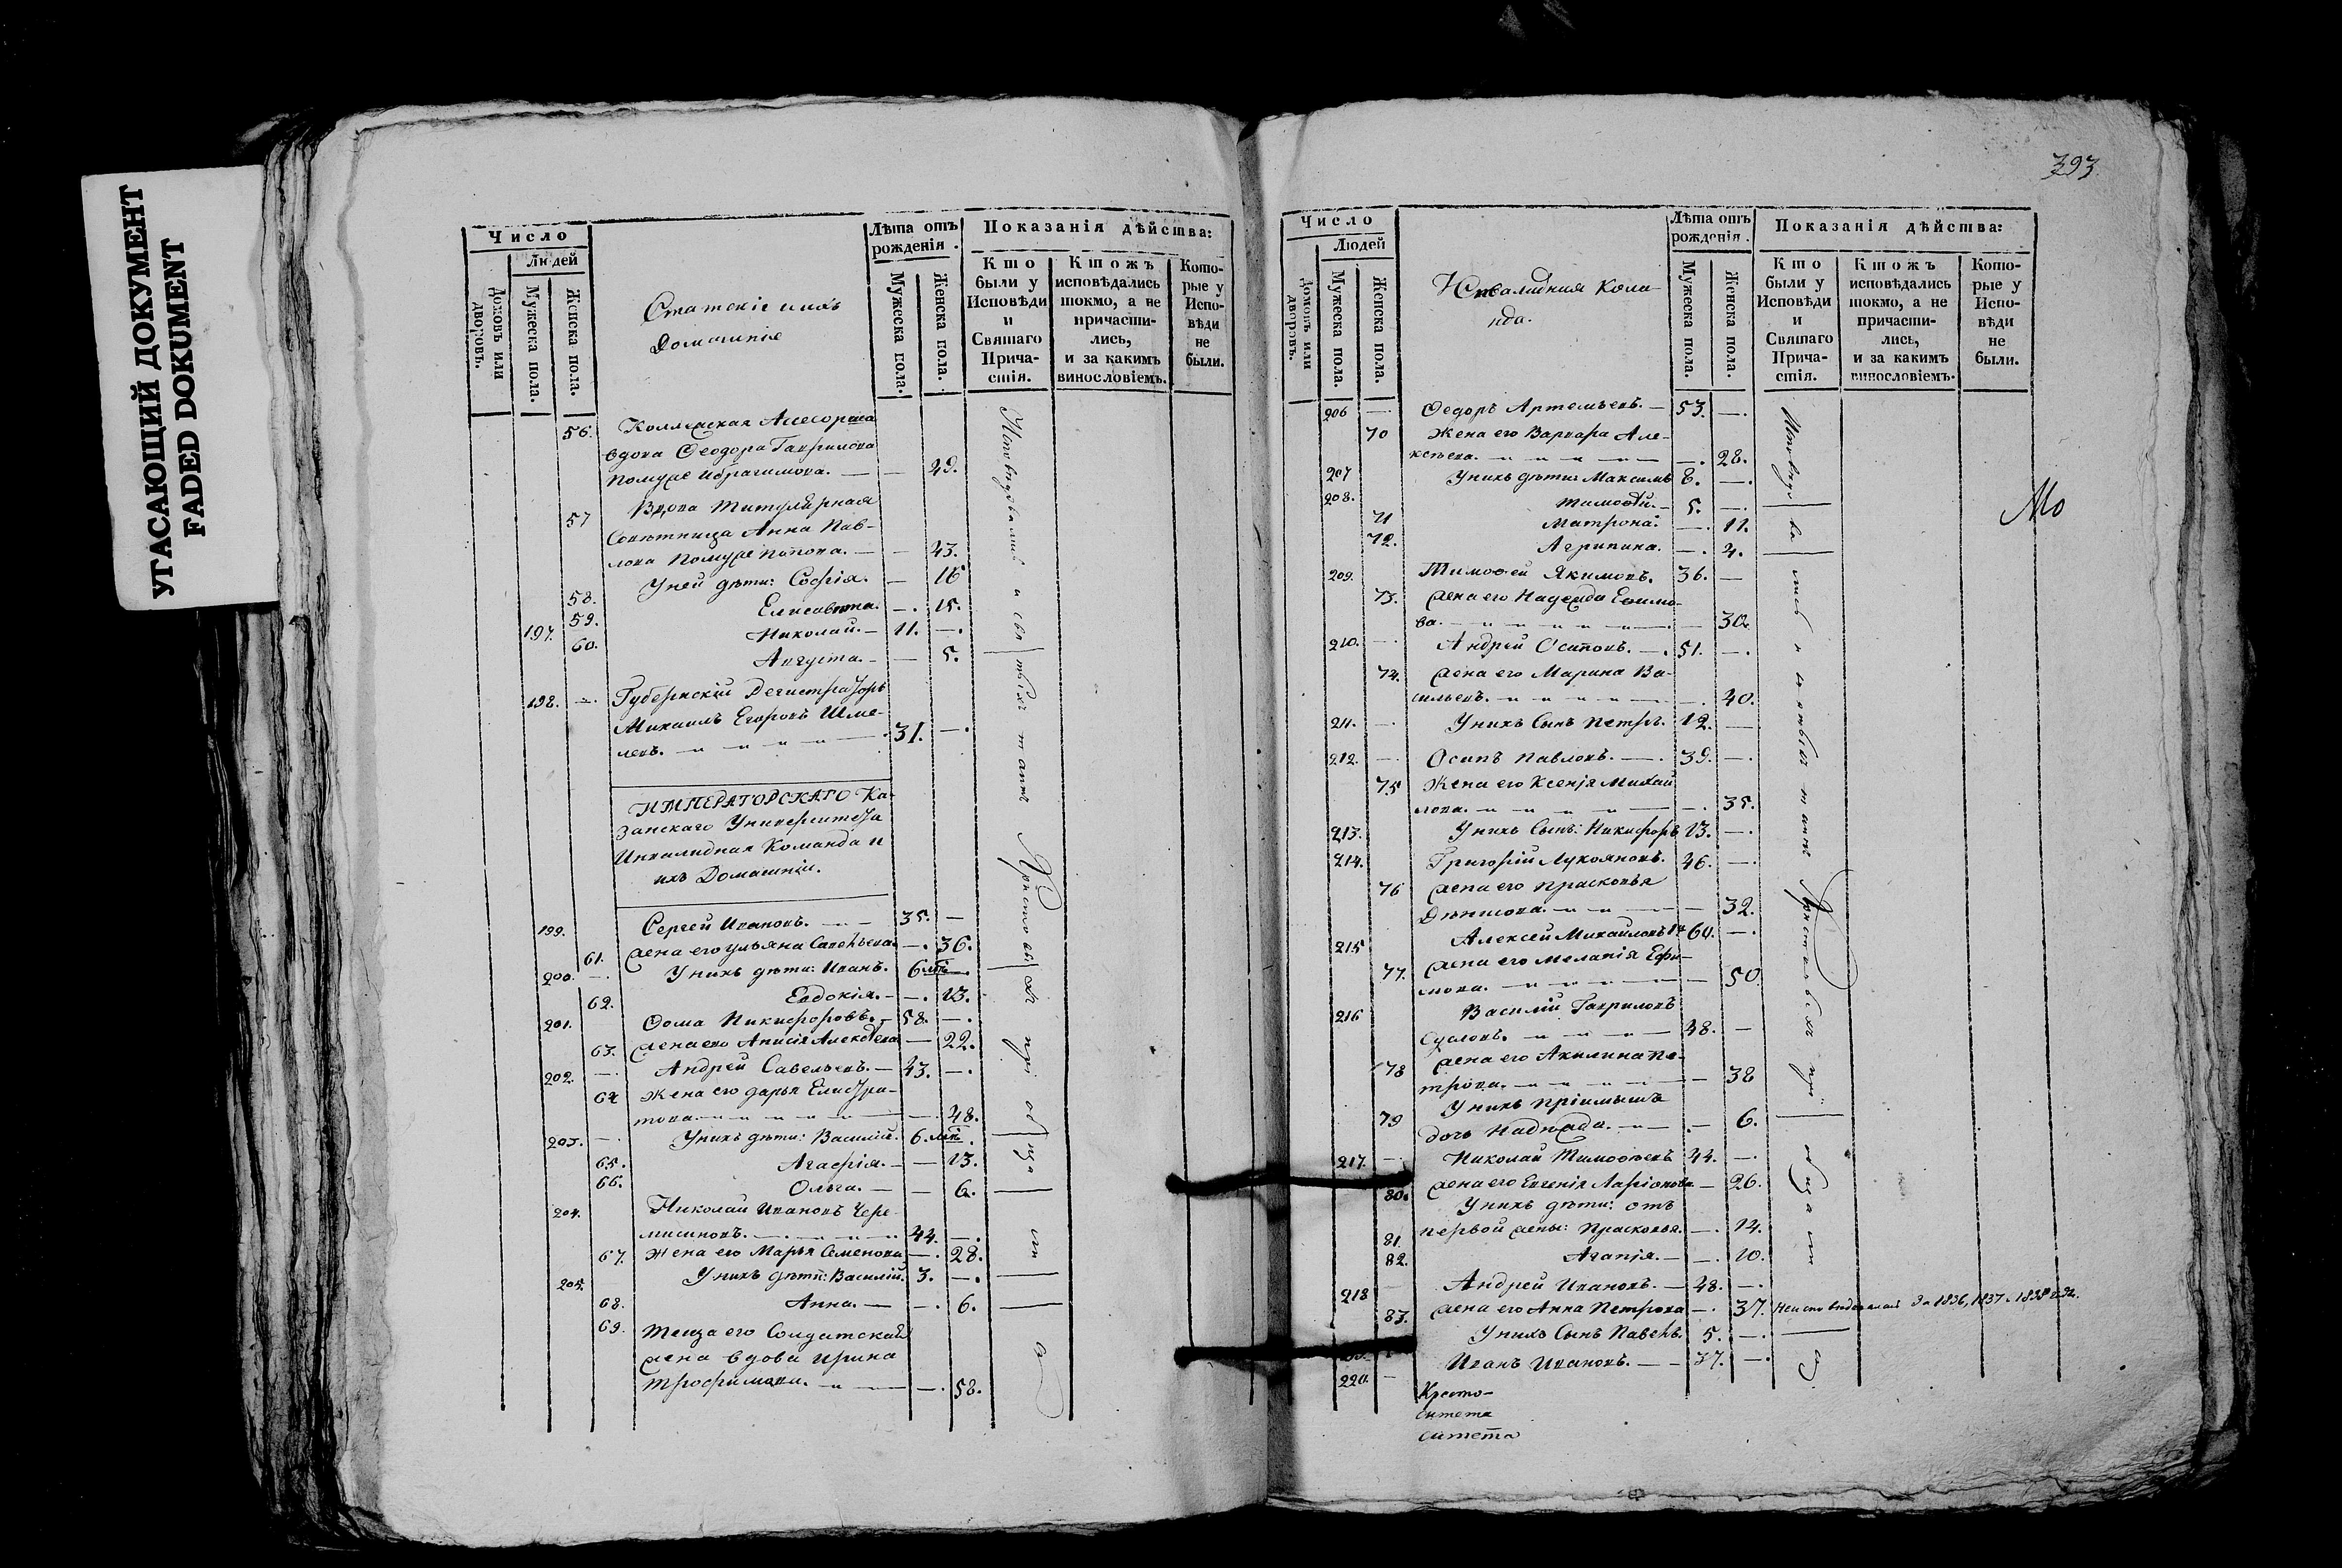 УГАСАЮЩИЙ ДОКУМЕНТ
FADED DOKUMENT
Число
Людей
Домовъ или дворовъ.
Мужеска пола.
Женска пола.
Статскіе и ихъ
Домашніе
Лѣта отъ рожденія.
Мужеска пола.
Женска пола.
Показанія дѣйства:
Кто были у Исповѣди и Святаго Причастія.
Ктожъ исповѣдались токмо, а не причастились, и за какимъ винословіемъ.
Которые у Исповѣди не были.
56. Коллежская Ассесорша
вдова Феодора Гаврилова
Ибрагимова. — — 49.
57 Вдова Титулярная
Совѣтница Анна Пав-
лова Попова. — — 43.
58. У ней дѣти: Софія. — 16
59. Елисавета. — 15.
197. Николай. — 11. —
60. Августа. — — 5.
198. — Губернскій Регистраторъ
Михаилъ Егоровъ Шме-
левъ. 31. —
ИМПЕРАТОРСКАГО Ка-
занскаго Университета
Инвалидная Команда и
ихъ Домашніи.
199. Сергей Ивановъ. — 35. —
61. жена его Ульяна Савельева — 36.
200. — У нихъ дѣти: Иванъ. 6.
62. Евдокія. — — 13.
201. Фома Никифоровъ. — 58. —
63. жена его Анисія — 22.
202. — Андрей Савельевъ. — 43. —
64 Жена его Дарья Елистра-
това — 48.
203. — У нихъ дѣти: Василій. 6.
65. Агафія. — — 13.
66. Ольга. — — 6.
204. Николай Ивановъ Чере-
мисиновъ. 44. —
67. Жена его Марья Семенова — 28.
205. У нихъ дѣти: Василій. 3. —
68. Анна. — — 6.
69. Теща его Солдатская
жена вдова Ирина
Трофимова. — 58.
393
Число
Людей
Домовъ или дворовъ.
Мужеска пола.
Женска пола.
Инвалидная Кома-
нда.
Лѣта отъ рожденія.
Мужеска пола.
Женска пола.
Показанія дѣйства:
Кто были у Исповѣди и Святаго Причастія.
Ктожъ исповѣдались токмо, а не причастились, и за какимъ винословіемъ.
Которые у Исповѣди не были.
206 — Федоръ Артемьевъ. — 53. —
70 Жена его Варвара Але-
ксѣева. — 28.
207 У нихъ дѣти: Максимъ 8. —
208. Тимофей. — 5. —
71 Матрона. — 11.
72. Агрипина. — 4.
209. Тимофей Якимовъ. 36. —
73. жена его Надежда Ефимо-
ва. — 30.
210. — Андрей Осиповъ. — 51. —
74. жена его Марина Ва-
сильевъ. — 40.
211. — У нихъ Сынъ Петръ. 12. —
212. — Осипъ Павловъ. — 39. —
75 Жена его Ксенія Михай
лова. — 35.
213. У нихъ Сынъ: Никифоръ 13. —
214. Григорій Лукояновъ. 46. —
76 жена его Прасковья
Денисова. — 32.
215 Алексей Михайловъ 60. —
77. жена его Меланія Ефи-
мова. — 50
216 Василій Гавриловъ
48. —
78 жена его Акилина Пе-
трова. — 38
79 У нихъ пріимышъ
дочь — 6.
217. — Николай Тимофѣевъ 44. —
80. жена его Евгенія Ларіонова — 26.
У нихъ дѣти: отъ
81. первой жены: Прасковья. — 14.
82. Агапія. — — 10.
218 — Андрей Ивановъ. — 48. —
83. жена его Анна Петрова — 37. за 1836, 1837 и 1838
У нихъ Сынъ Павелъ. 5. —
220. — Иванъ Ивановъ. — 37. —
Кресто-